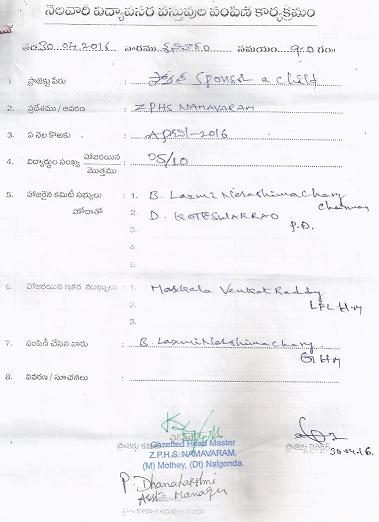 నెలవారీ విద్యావసర వస్తువుల పంపిణీ కార్యక్రమం
తేది: 30.04.2016 వారము శనివారం సమయం 9.00 గం॥
1. ప్రాజెక్టు పేరు : Sponsor a child
2. ప్రదేశము / ఆవరణ : ZPHS NAMAVARAM
3. ఏ నెల కొరకు : April-2016
4. విద్యార్థుల సంఖ్య హాజరయిన / మొత్తము : 05/10
5. హాజరైన కమిటీ సభ్యులు : 1. B. Laxmi Narashima Chary
హోదాతో Chairman
2. D. KOTESWARRAO
P.D.
3.
4.
5.
6. హాజరయిన ఇతర ముఖ్యులు : 1. Maskala Venkat Reddy
2. LFL H.M
3.
7. పంపిణీ చేసిన వారు : B. Laxmi Narashima Chary
G H M
8. వివరణ / సూచనలు :
Gazetted Head Master
Z.P.H.S. NAMAVARAM,
(M) Mothey, (Dt) Nalgonda.
30.04.16.
P. Dhanalakshmi
Asst. Manager